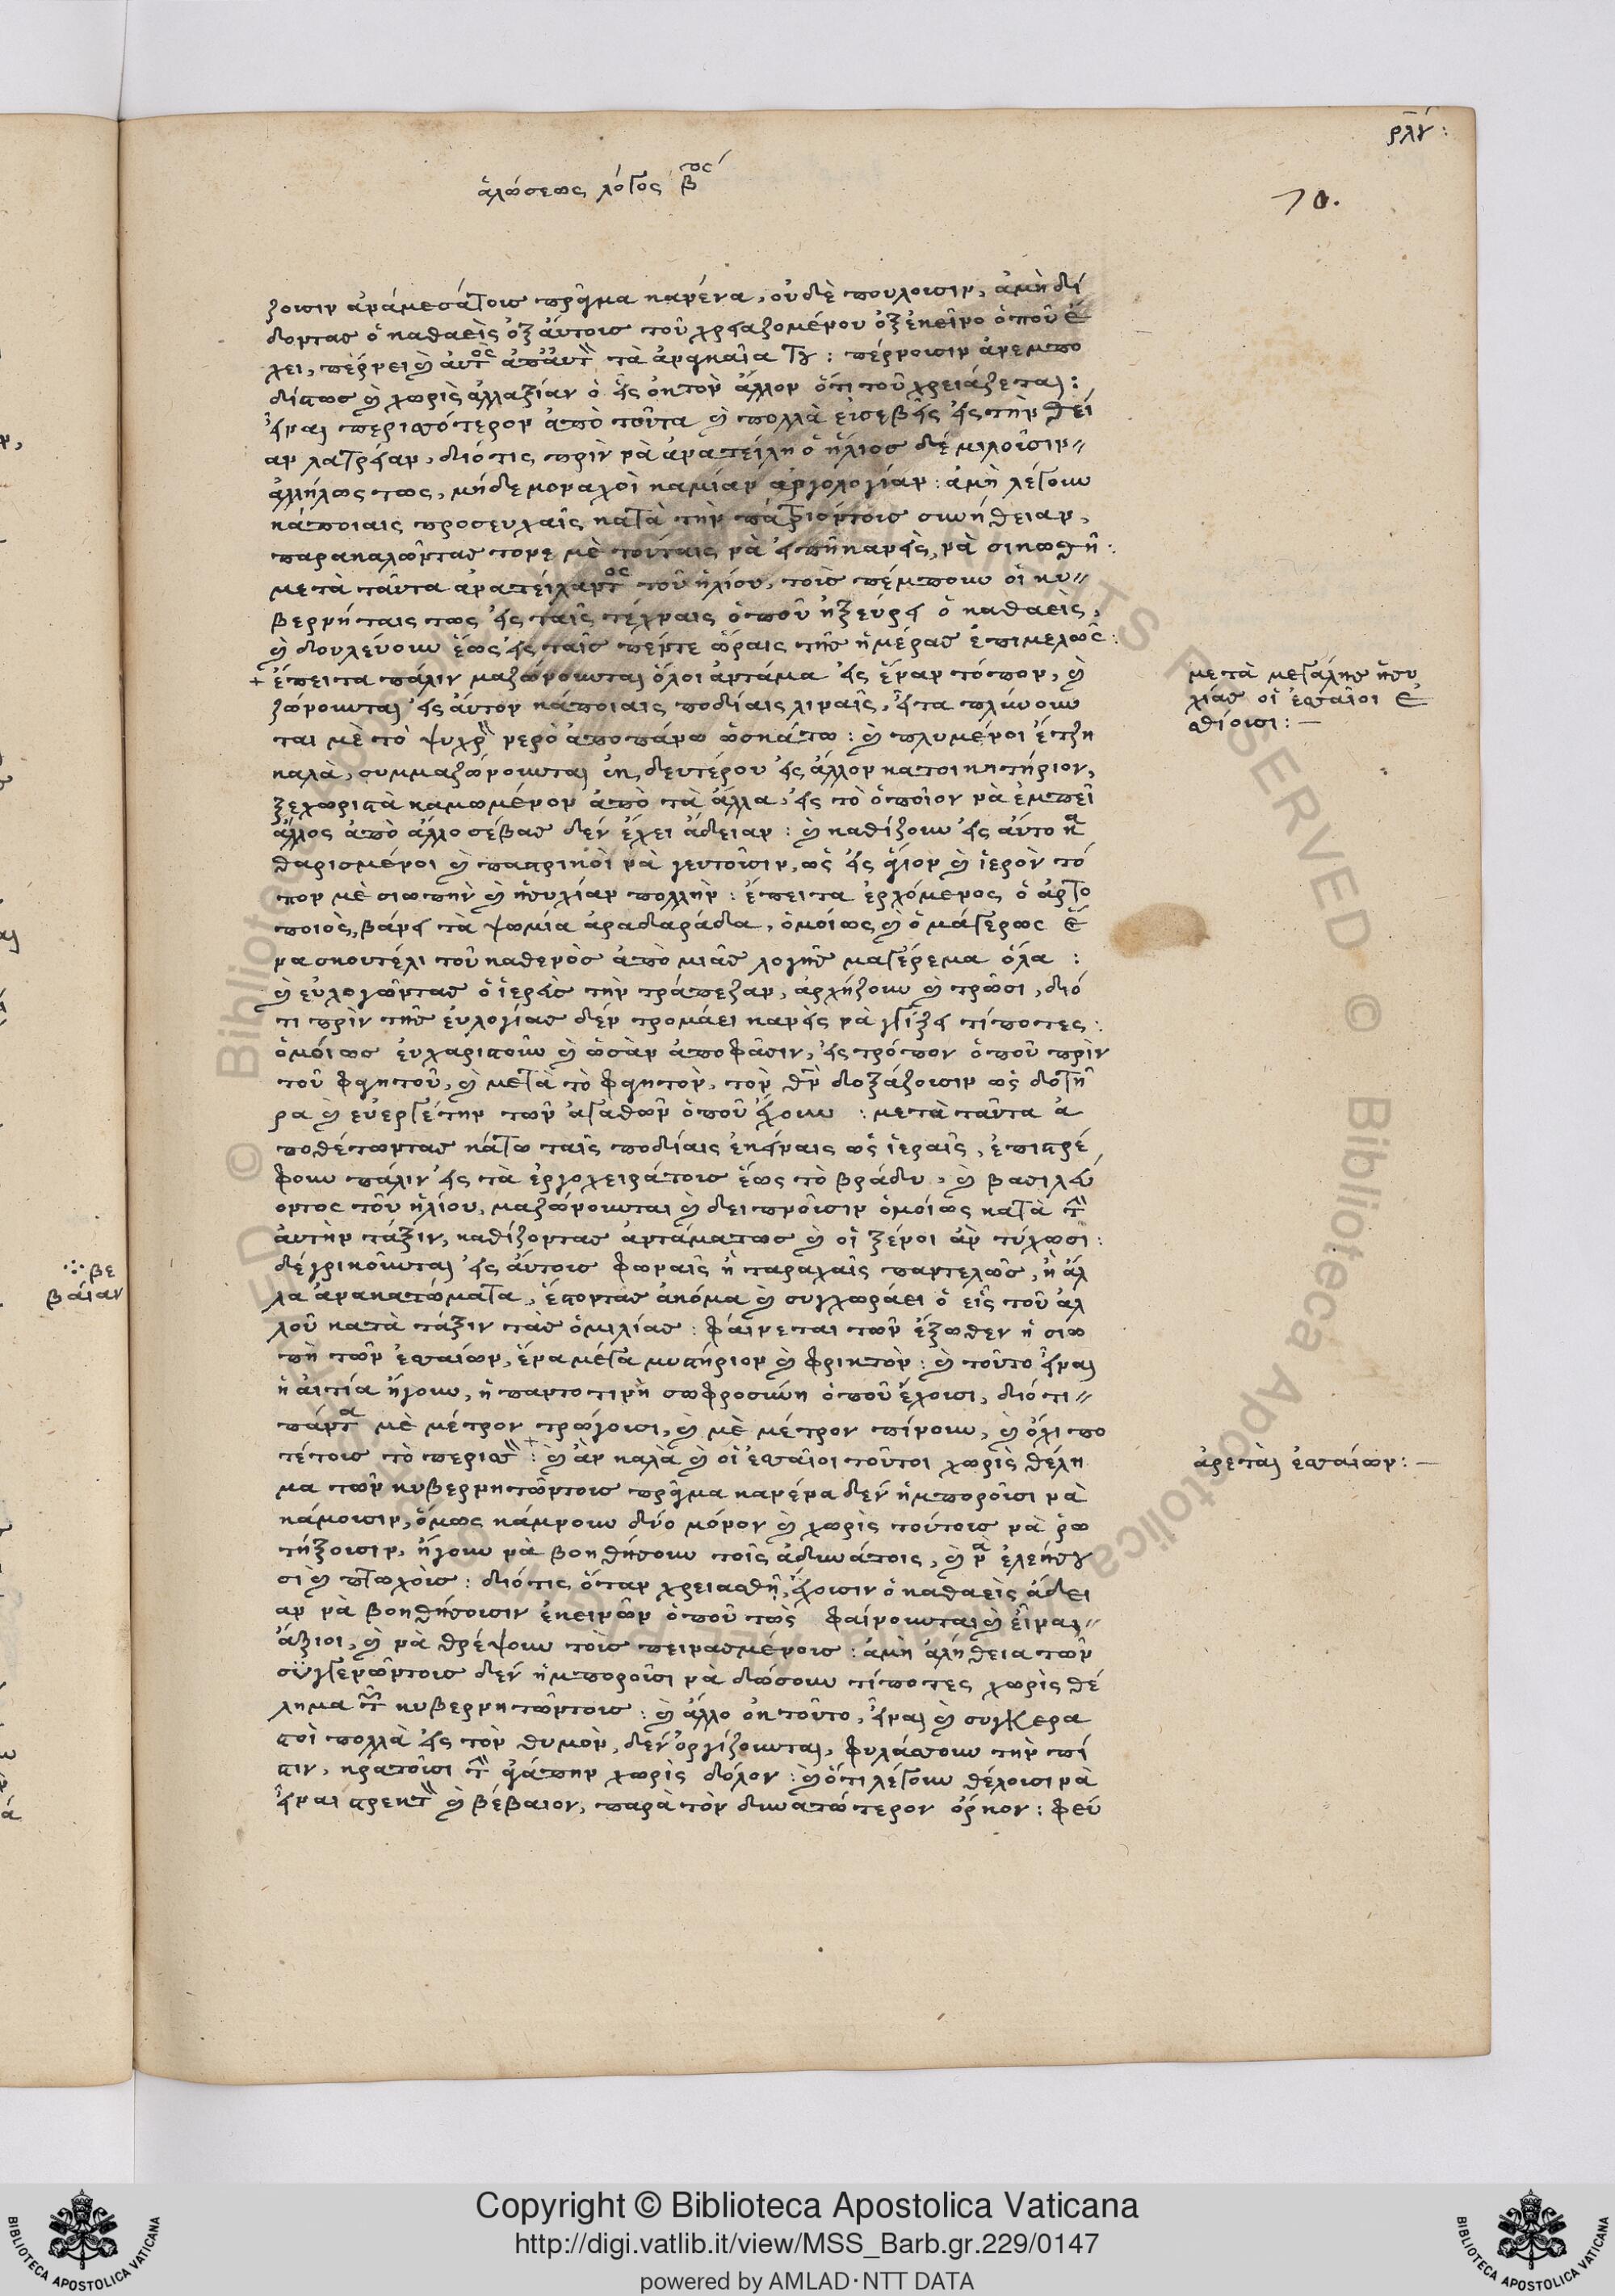 ρλγ:
10.
ἁλώσεως λόγος βος
ζουσιν ἀνάμεσάτους πρᾶγμα κανένα, οὐδὲ πουλοῦσιν, ἀμὴ δί
δοντας ὁ καθαεὶς ὀξ αὐτοὺς τοῦ χρειαζομένου ὀξ ἐκεῖνο ὁποῦ ἔ
χει, πέρνει καὶ αὐτὸς ἀπ' αὐτὸν τὰ ἀναγκαῖα του: πέρνουσιν ἀνεμπο
δίστως καὶ χωρὶς ἀλλαξίαν ὁ εἷς ἐκ τὸν ἄλλον ὅτι τοῦ χρειάζεται:
εἶναι περισσότερον ἀπὸ τοῦτα καὶ πολλὰ εὐσεβεῖς εἰς τὴν θεί
αν λατρείαν, διότις πρὶν νὰ ἀνατείλῃ ὁ ἥλιος δὲ μιλοῦσιν
ἀλλήλως τως, μήδε μοναχοὶ καμίαν ἀργολογίαν: ἀμὴ λέγουν
κάποιαις προσευχαῖς κατὰ τὴν πάτριόντους συνήθειαν,
παρακαλῶντας τονε μὲ τούταις νὰ εἰπῇ κανεὶς, νὰ σηκωθῇ:
μετὰ ταῦτα ἀνατείλαντος τοῦ ἡλίου, τοὺς πέμπουν οἱ κυ
βερνήταις τως εἰς ταῖς τέχναις ὁποῦ ἠξεύρει ὁ καθαεὶς,
καὶ δουλεύουν ἕως εἰς ταῖς πέντε ὥραις τῆς ἡμέρας ἐπιμελῶς:
+ ἔπειτα πάλιν μαζώνουνται ὅλοι ἀντάμα εἰς ἕναν τόπον, καὶ
ζώνουνται εἰς αὐτον κάποιαις ποδίαις λιναῖς, εἶτα πλύνουν
ται μὲ τὸ ψυχρὸν νερὸ ἀποπάνω ὡσκάτω: καὶ πλυμένοι ἔτζη
καλὰ, συμμαζώνουνται ἐκ δευτέρου εἰς ἄλλον κατοικητήριον,
ξεχωριστὰ καμωμένον ἀπὸ τὰ ἄλλα, εἰς τὸ ὁποῖον νὰ ἐμπεῖ
ἄλλος ἀπὸ ἄλλο σέβας δὲν ἔχει ἄδειαν: καὶ καθίζουν εἰς αὐτο κα
θαρισμένοι καὶ παστρικοὶ νὰ γευτοῦσιν, ὡς εἰς ἅγιον καὶ ἱερὸν τό
πον μὲ σιωπὴν καὶ ἡσυχίαν πολλὴν: ἔπειτα ἐρχόμενος ὁ ἀρτο
ποιὸς, βάνει τὰ ψωμία ἀραδαράδα, ὁμοίως καὶ ὁ μάγερως ἕ
να σκουτέλι τοῦ καθενὸς ἀπὸ μιᾶς λογῆς μαγέρεμα ὅλα:
καὶ εὐλογῶντας ὁ ἱερεὺς τὴν τράπεζαν, ἀρχίζουν καὶ τρῶσι, διό
τι πρὶν τῆς εὐλογίας δὲν τρομάει κανεὶς νὰ γγίξει τίποτες:
ὁμοίως εὐχαριστοῦν καὶ ὡσὰν ἀποφᾶσιν, εἰς τρόπον ὁποῦ πρὶν
τοῦ φαγητοῦ, καὶ μετὰ τὸ φαγητὸν, τὸν θῢν δοξάζουσιν ὡς δοτῆ
ρα καὶ εὐεργέτην τῶν ἀγαθῶν ὁποῦ ἔχουν: μετὰ ταῦτα ἀ
ποθέτωντας κάτω ταῖς ποδίαις ἐκείναις ὡς ἱεραῖς, ἐπιστρέ
φουν πάλιν εἰς τὰ ἐργοχειράτους ἕως τὸ βράδυ, καὶ βασιλεύ
οντος τοῦ ἡλίου, μαζώνουνται καὶ δειπνοῦσιν ὁμοίως κατὰ τὴν
αὐτὴν τάξιν, καθίζοντας ἀντάματως καὶ οἱ ξένοι ἂν τύχωσι:
δὲ γρικοῦνται εἰς αὐτους φωναῖς ἢ ταραχαῖς παντελῶς, ἢ ἄλ
λα ἀνακατώματα, ἔστοντας ἀκόμα καὶ συγχωράει ὁ εἷς τοῦ ἀλ
λοῦ κατὰ τάξιν τὰς ὁμιλίας: φαίνεται τῶν ἔξωθεν ἡ σιω
πὴ τῶν ἐσσαίων, ἕνα μέγα μυστήριον καὶ φρικτὸν: καὶ τοῦτο εἶναι
ἡ αἰτία ἤγουν, ἡ παντοτινὴ σωφροσύνη ὁποῦ ἔχουσι, διότι
πάντα μὲ μέτρον τρώγουσι, καὶ μὲ μέτρον πίνουν, καὶ ὄχι πο
τέτους τὸ περισσὸν: καὶ ἂν καλὰ καὶ οἱ ἐσσαῖοι τοῦτοι χωρὶς θέλη
μα τῶν κυβερνητῶντους πρᾶγμα κανένα δὲν ἠμποροῦσι νὰ
κάμουσιν, ὅμως κάμνουν δύο μόνον καὶ χωρὶς τούτους νὰ ρω
τήξουσιν, ἤγουν νὰ βοηθήσουν τοῖς ἀδυνάτοις, καὶ νὰ ἐλεήσου
σι καὶ πτωχοὺς: διότις ὅταν χρειασθῇ, ἔχουσιν ὁ καθαεὶς ἄδει
αν νὰ βοηθήσουσιν ἐκεινῶν ὁποῦ τως φαίνουνται καὶ εἶναι
ἄξιοι, καὶ νὰ θρέψουν τοὺς πειρασμένους: ἀμὴ ἀλήθεια τῶν
συγγενῶντους δὲν ἠμποροῦσι νὰ δώσουν τίποτες χωρὶς θέ
λημα τῶν κυβερνητῶντους: καὶ ἄλλο ἐκ τοῦτο, εἶναι καὶ συγκερα
στοὶ πολλὰ εἰς τὸν θυμὸν, δὲν ὀργίζουνται, φυλάσσουν τὴν πί
στιν, κρατοῦσι τὴν ἀγάπην χωρὶς δόλον: καὶ ὅτι λέγουν θέλουσι νὰ
εἶναι στρεκτὸν καὶ βέβαιον, παρὰ τὸν δυνατώτερον ὅρκον: φεύ
μετὰ μεγάλης ἡσυ
χίας οἱ ἐσσαῖοι ἐ
σθίουσι: —
ἀρεταὶ ἐσσαίων: —
∴ βε
βαίαν
Copyright © Biblioteca Apostolica Vaticana
http://digi.vatlib.it/view/MSS_Barb.gr.229/0147
powered by AMLAD·NTT DATA